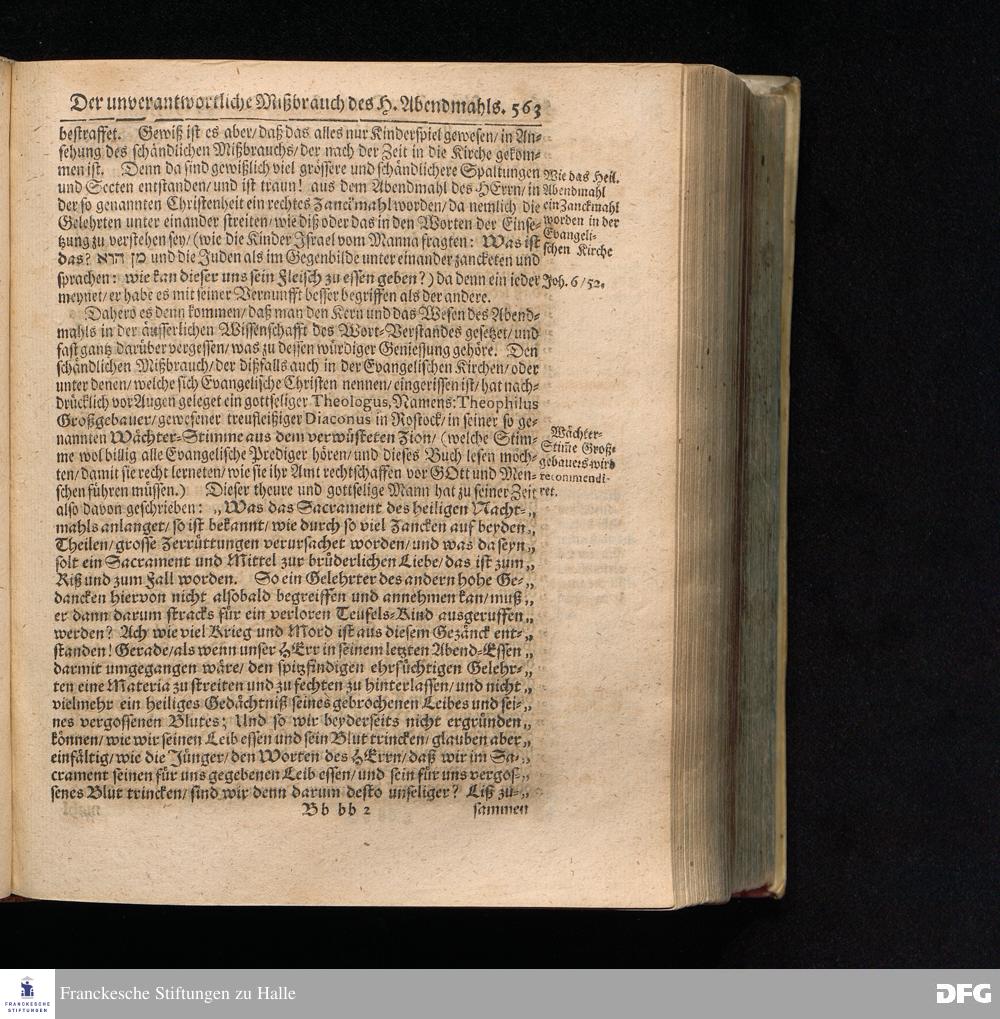 Der unverantwortliche Mißbrauch des H. Abendmahls. 563
bestraffet. Gewiß ist es aber/ daß das alles nur Kinderspiel gewesen/ in An-
sehung des schändlichen Mißbrauchs/ der nach der Zeit in die Kirche gekom-
men ist. Denn da sind gewißlich viel grössere und schändlichere Spaltungen
und Secten entstanden/ und ist traun! aus dem Abendmahl des HErrn/ in
der so genannten Christenheit ein rechtes Zanckmahl worden/ da nemlich die
Gelehrten unter einander streiten/ wie diß oder das in den Worten der Einse-
tzung zu verstehen sey/ (wie die Kinder Israel vom Manna fragten: Was ist
das? מן הוא und die Juden als im Gegenbilde unter einander zancketen und
sprachen: wie kan dieser uns sein Fleisch zu essen geben?) da denn ein ieder
meynet/ er habe es mit seiner Vernunfft besser begriffen als der andere.
Wie das Heil.
Abendmahl
ein Zanckmahl
worden in der
Evangeli-
schen Kirche
Joh. 6/ 52.
Dahero es denn kommen/ daß man den Kern und das Wesen des Abend-
mahls in der äusserlichen Wissenschafft des Wort-Verstandes gesetzet/ und
fast gantz darüber vergessen/ was zu dessen würdiger Geniessung gehöre. Den
schändlichen Mißbrauch/ der dißfalls auch in der Evangelischen Kirchen/ oder
unter denen/ welche sich Evangelische Christen nennen/ eingerissen ist/ hat nach-
drücklich vor Augen geleget ein gottseliger Theologus, Namens: Theophilus
Großgebauer/ gewesener treufleißiger Diaconus in Rostock/ in seiner so ge-
nannten Wächter-Stimme aus dem verwüsteten Zion/ (welche Stim-
me wol billig alle Evangelische Prediger hören/ und dieses Buch lesen möch-
ten/ damit sie recht lerneten/ wie sie ihr Amt rechtschaffen vor GOtt und Men-
schen führen müssen.) Dieser theure und gottselige Mann hat zu seiner Zeit
Wächter-
Stim̃e Groß-
gebauers wird
recommendi-
ret.
also davon geschrieben: „Was das Sacrament des heiligen Nacht-„
mahls anlanget/ so ist bekannt/ wie durch so viel Zancken auf beyden„
Theilen/ grosse Zerrüttungen verursachet worden/ und was da seyn„
solt ein Sacrament und Mittel zur brüderlichen Liebe/ das ist zum„
Riß und zum Fall worden. So ein Gelehrter des andern hohe Ge-„
dancken hiervon nicht alsobald begreiffen und annehmen kan/ muß„
er dann darum stracks für ein verloren Teufels-Kind ausgeruffen„
werden? Ach wie viel Krieg und Mord ist aus diesem Gezänck ent-„
standen! Gerade/ als wenn unser HErr in seinem letzten Abend-Essen„
darmit umgegangen wäre/ den spitzfindigen ehrsüchtigen Gelehr-„
ten eine Materia zu streiten und zu fechten zu hinterlassen/ und nicht„
vielmehr ein heiliges Gedächtniß seines gebrochenen Leibes und sei-„
nes vergossenen Blutes; Und so wir beyderseits nicht ergründen„
können/ wie wir seinen Leib essen und sein Blut trincken/ glauben aber„
einfältig/ wie die Jünger/ den Worten des HErrn/ daß wir im Sa-„
crament seinen für uns gegebenen Leib essen/ und sein für uns vergos-„
senes Blut trincken/ sind wir denn darum desto unseliger? Liß zu-„
Bb bb 2 sammen
FRANCKESCHE
STIFTUNGEN
Franckesche Stiftungen zu Halle
DFG